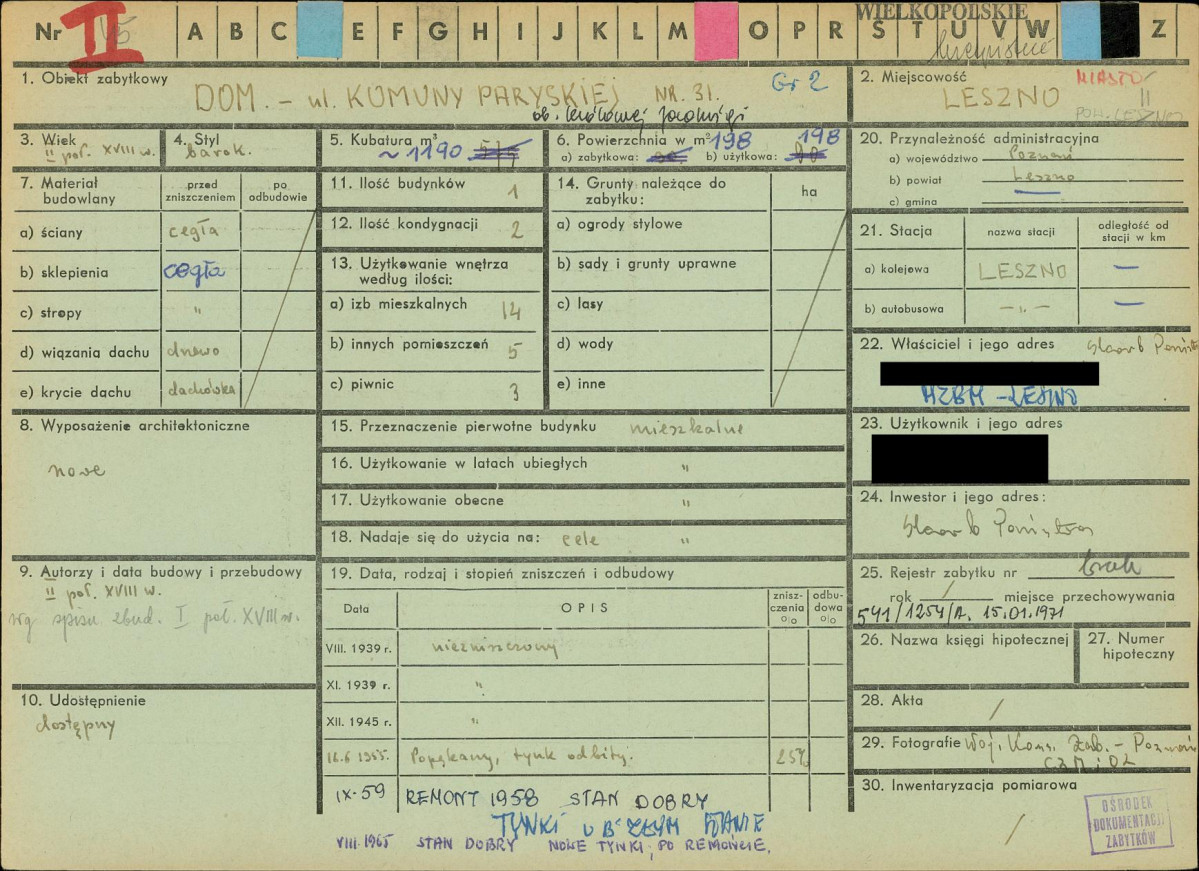 Nr II 45 A B C E F G H I J K L M O P R S T U V W Z
WIELKOPOLSKIE
1. Obiekt zabytkowy
DOM. – ul. KOMUNY PARYSKIEJ NR. 31.
Gr 2
ob. Królowej Jadwigi
2. Miejscowość
MIASTO
LESZNO
II
POW. LESZNO
3. Wiek
II poł. XVIII w.
4. Styl
barok.
5. Kubatura m³
~ 1190
6. Powierzchnia w m²
a) zabytkowa: 198 b) użytkowa: 198
20. Przynależność administracyjna
a) województwo Poznań
b) powiat Leszno
c) gmina —
7. Materiał budowlany
przed zniszczeniem
po odbudowie
a) ściany cegła
b) sklepienia cegła
c) stropy "
d) wiązania dachu drzewo
e) krycie dachu dachówka
11. Ilość budynków 1
12. Ilość kondygnacji 2
13. Użytkowanie wnętrza według ilości:
a) izb mieszkalnych 14
b) innych pomieszczeń 5
c) piwnic 3
14. Grunty należące do zabytku:
ha
a) ogrody stylowe
b) sady i grunty uprawne
c) lasy
d) wody
e) inne
21. Stacja
nazwa stacji
odległość od stacji w km
a) kolejowa LESZNO —
b) autobusowa —"— —
22. Właściciel i jego adres Skarb Państw
MZBM – LESZNO
23. Użytkownik i jego adres
24. Inwestor i jego adres:
Skarb Państwa
8. Wyposażenie architektoniczne
nowe
15. Przeznaczenie pierwotne budynku mieszkalne
16. Użytkowanie w latach ubiegłych "
17. Użytkowanie obecne "
18. Nadaje się do użycia na: cele "
9. Autorzy i data budowy i przebudowy
II poł. XVIII w.
wg spisu zbud. I poł. XVIII w.
19. Data, rodzaj i stopień zniszczeń i odbudowy
Data
OPIS
zniszczenia %
odbudowa %
VIII. 1939 r. niezniszczony
XI. 1939 r. "
XII. 1945 r. "
1955. Popękany, tynk odbity. 25%
IX-59 REMONT 1958 STAN DOBRY
TYNKI W B. ZŁYM STANIE
VIII. 1965 STAN DOBRY NOWE TYNKI, PO REMONCIE.
25. Rejestr zabytku nr brak
rok / miejsce przechowywania
541/1254/A. 15.01.1971
26. Nazwa księgi hipotecznej
27. Numer hipoteczny
10. Udostępnienie
dostępny
28. Akta /
29. Fotografie Woj. Kons. Zab. – Poznań
CZM i OZ
30. Inwentaryzacja pomiarowa
/
OŚRODEK
DOKUMENTACJI
ZABYTKÓW